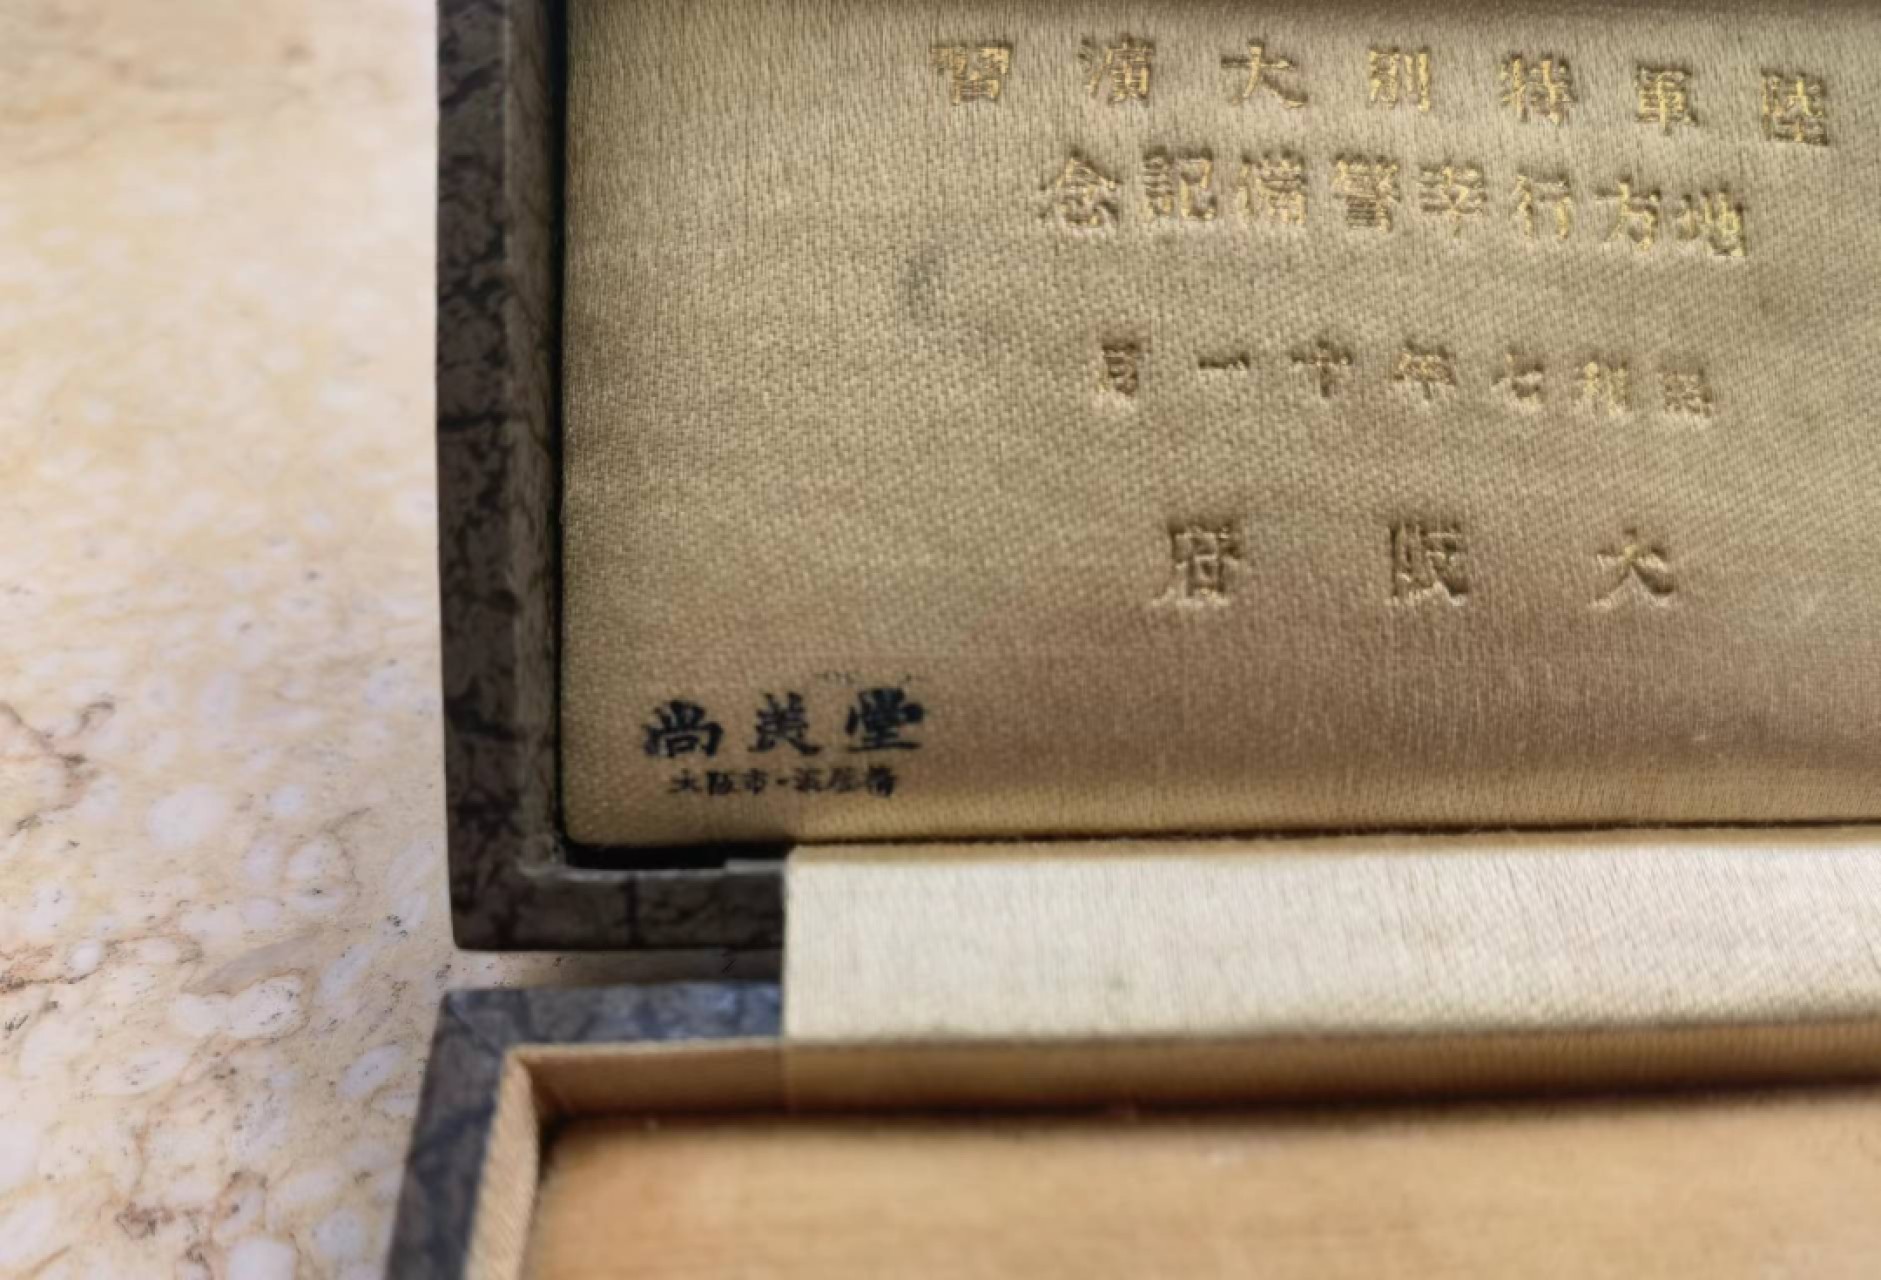 陸軍特別大演習
地方行幸警備記念
昭和七年十一月
大阪府
尚美堂
大阪市・淀屋橋